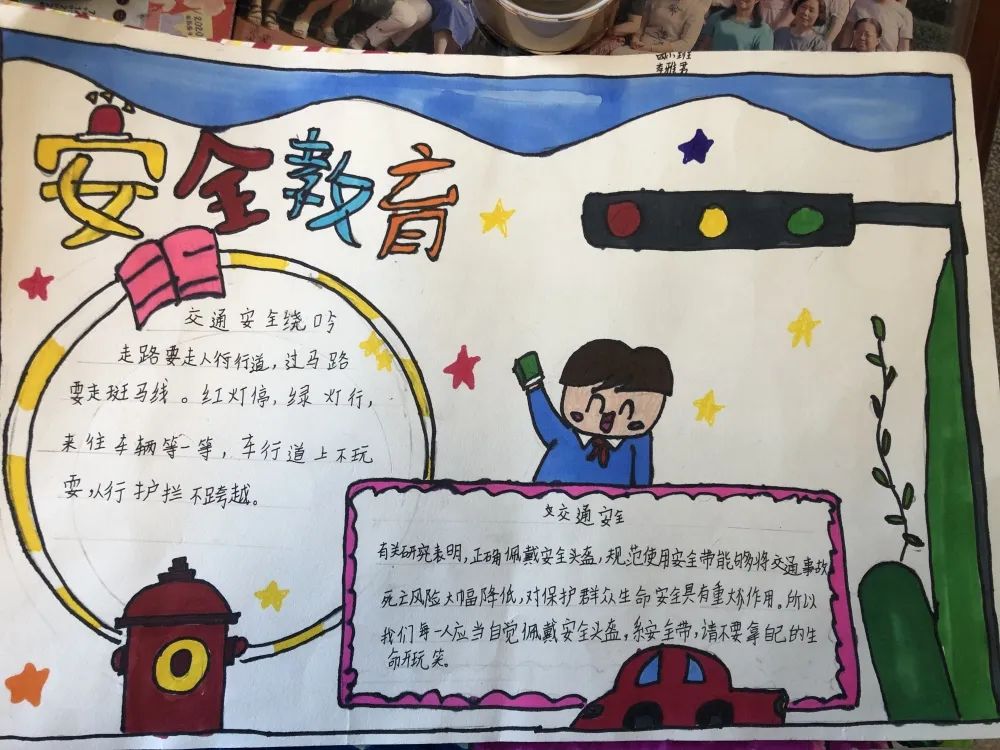 安全教育
交通安全绕口令
走路要走人行行道，过马路
要走斑马线。红灯停，绿灯行，
来往车辆等一等，车行道上不玩
耍，人行护拦不跨越。
交通安全
有关研究表明，正确佩戴安全头盔，规范使用安全带能够将交通事故
死亡风险大幅降低，对保护群众生命安全具有重大作用。所以
我们每一人应当自觉佩戴安全头盔，系安全带，请不要拿自己的生
命开玩笑。